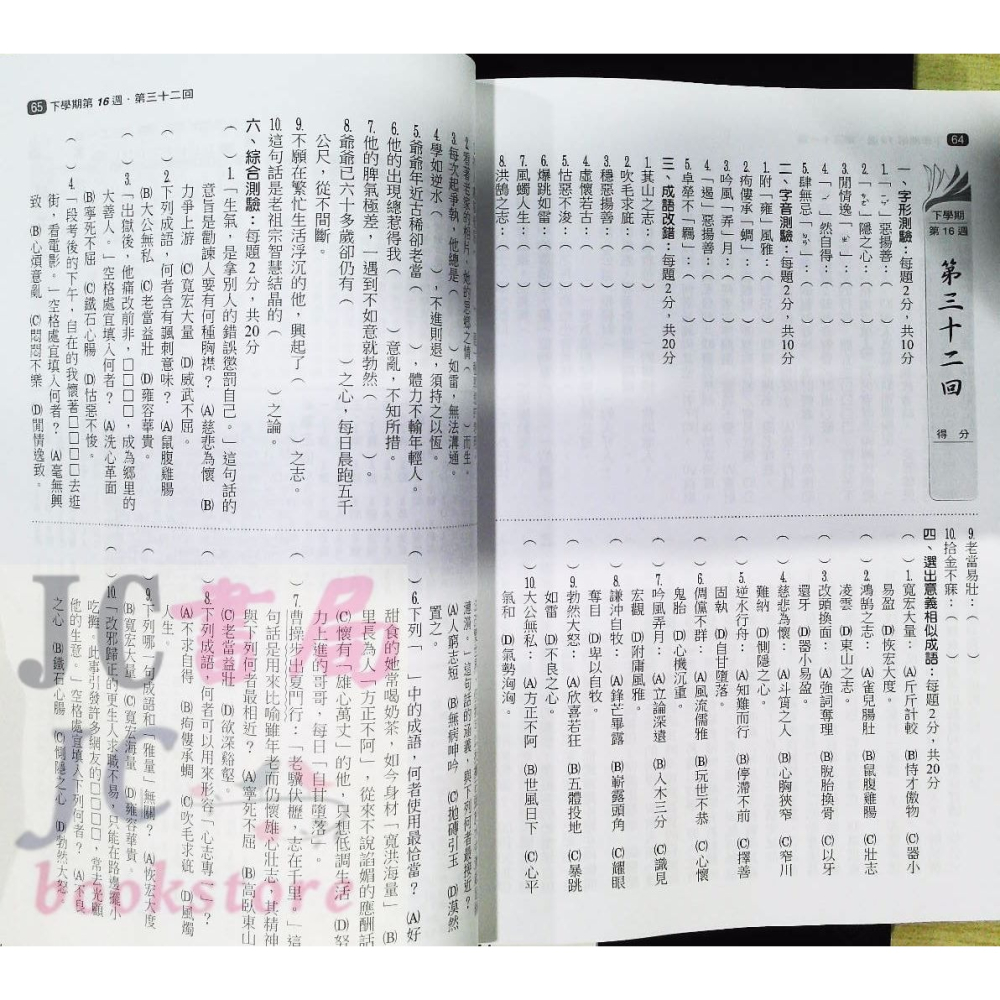 64
下學期
第16週
第三十二回
得分
一、字形測驗：每題2分，共10分
1.「ㄜˋ」惡揚善：（　）
2.「ㄘㄜˋ」隱之心：（　）
3.閒情逸「ㄓˋ」：（　）
4.「ㄧˊ」然自得：（　）
5.肆無忌「ㄉㄢˋ」：（　）
二、字音測驗：每題2分，共10分
1.附「雍」風雅：（　）
2.痀僂承「蜩」：（　）
3.吟風「弄」月：（　）
4.「遏」惡揚善：（　）
5.卓犖不「羈」：（　）
三、成語改錯：每題2分，共20分
1.萁山之志：（　）
2.吹毛求庛：（　）
3.穩惡揚善：（　）
4.虛懷若古：（　）
5.怙惡不浚：（　）
6.爆跳如雷：（　）
7.風蠋人生：（　）
8.洪鵠之志：（　）
9.老當易壯：（　）
10.拾金不寐：（　）
四、選出意義相似成語：每題2分，共20分
（　）1.寬宏大量：(A)斤斤計較 (B)恃才傲物 (C)器小
易盈 (D)恢宏大度。
（　）2.鴻鵠之志：(A)雀兒腸肚 (B)鼠腹雞腸 (C)壯志
凌雲 (D)東山之志。
（　）3.改頭換面：(A)強詞奪理 (B)脫胎換骨 (C)以牙
還牙 (D)器小易盈。
（　）4.慈悲為懷：(A)斗筲之人 (B)心胸狹窄 (C)窄川
難納 (D)惻隱之心。
（　）5.逆水行舟：(A)知難而行 (B)停滯不前 (C)擇善
固執 (D)自甘墮落。
（　）6.倜儻不群：(A)風流儒雅 (B)玩世不恭 (C)心懷
鬼胎 (D)心機沉重。
（　）7.吟風弄月：(A)立論深遠 (B)入木三分 (C)識見
宏觀 (D)附庸風雅。
（　）8.謙沖自牧：(A)鋒芒畢露 (B)嶄露頭角 (C)耀眼
奪目 (D)卑以自牧。
（　）9.勃然大怒：(A)欣喜若狂 (B)五體投地 (C)暴跳
如雷 (D)不良之心。
（　）10.大公無私：(A)方正不阿 (B)世風日下 (C)心平
氣和 (D)氣勢洶洶。
65 下學期第16週．第三十二回
2.望著老家的相片，她的思鄉之情（　）而生。
3.每次起爭執，他總是（　）如雷，無法溝通。
4.學如逆水（　），不進則退，須持之以恆。
5.爺爺年近古稀卻老當（　），體力不輸年輕人。
6.他的出現總惹得我（　）意亂，不知所措。
7.他的脾氣極差，一遇到不如意就勃然（　）。
8.爺爺已六十多歲卻仍有（　）之心，每日晨跑五千
公尺，從不間斷。
9.不願在繁忙生活浮沉的他，興起了（　）之志。
10.這句話是老祖宗智慧結晶的（　）之論。
六、綜合測驗：每題2分，共20分
（　）1.「生氣，是拿別人的錯誤懲罰自己。」這句話的
意旨是勸諫人要有何種胸襟？ (A)慈悲為懷 (B)
力爭上游 (C)寬宏大量 (D)威武不屈。
（　）2.下列成語，何者含有諷刺意味？ (A)鼠腹雞腸
(B)大公無私 (C)老當益壯 (D)雍容華貴。
（　）3.「出獄後，他痛改前非，□□□□，成為鄉里的
大善人。」空格處宜填入何者？ (A)洗心革面
(B)寧死不屈 (C)鐵石心腸 (D)怙惡不悛。
（　）4.「段考後的下午，自在的我懷著□□□□去逛
街，看電影。」空格處宜填入何者？ (A)毫無興
致 (B)心煩意亂 (C)悶悶不樂 (D)閒情逸致。
這句話的涵義，與下列何者最接近？
(A)人窮志短 (B)無病呻吟 (C)拋磚引玉 (D)漠然
置之。
（　）6.下列「　」中的成語，何者使用最恰當？ (A)好
甜食的她常喝奶茶，如今身材「寬洪海量」 (B)
里長為人「方正不阿」，從來不說諂媚的應酬話
(C)懷有「雄心萬丈」的他，只想低調生活 (D)努
力上進的哥哥，每日「自甘墮落」。
（　）7.曹操步出夏門行：「老驥伏櫪，志在千里。」這
句話是用來比喻雖年老而仍懷雄心壯志，其精神
與下列何者最相近？ (A)寧死不屈 (B)高臥東山
(C)老當益壯 (D)欲深谿壑。
（　）8.下列成語，何者可以用來形容「心志專一」？
(A)不求自得 (B)痀僂承蜩 (C)吹毛求疵 (D)風燭
人生。
（　）9.下列哪一句成語和「雅量」無關？ (A)恢宏大度
(B)寬宏大量 (C)寬宏海量 (D)雍容華貴。
（　）10.「改邪歸正的更生人求職不易，只能在路邊擺小
吃攤。此事引發許多網友的□□□□，常去光顧
他的生意。」空格處宜填入下列何者？ (A)不良
之心 (B)鐵石心腸 (C)惻隱之心 (D)勃然大怒。
JC書局
JC
bookstore